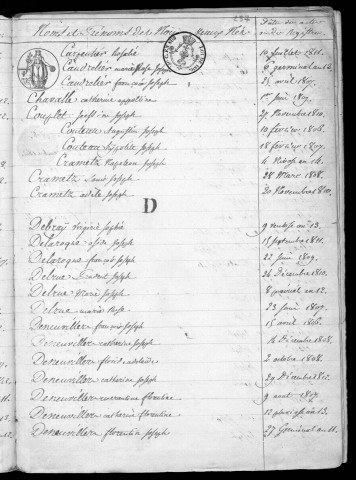 Noms et Prénoms des
Date des actes
au dit Registre
Carpentier Rosalie 10 juillet 1811.
Caudrelier marie Rose Joseph 6 germinal an 13
Caudrelier françois Joseph 25 avril 1807.
Chavalle catherine appolline 1er Juin 1809.
Couplet Joseph 27 Novembre 1810.
Couteau augustin Joseph 10 février 1806.
Couteau hippolite Joseph 18 février 1807.
Crametz Napoleon Joseph 4 Nivose an 14.
Crametz Louis Joseph 28 Mars 1808.
Crametz adile Joseph 20 Novembre 1810.
D
Debray Virginie Sophie 9 ventose an 13.
Delaroque Joseph 15 septembre 1811.
Delaroque françois Joseph 22 Juin 1809.
Delrue Joseph 26 Décembre 1810.
Delrue Marie Joseph 8 prairial an 12.
Delrue marie Rose 23 Juin 1807.
Deneuviller françois Joseph 15 avril 1806.
Deneuviller catherine Joseph 14 Décembre 1808.
Deneuviller adelaide 2 octobre 1808.
Deneuviller catherine Joseph 29 Décembre
Deneuviller florentine 9 aout 1807.
Deneuviller catherine florentine 12 pluviose an 13.
Deneuviller florentin Joseph 27 Germinal an 11.